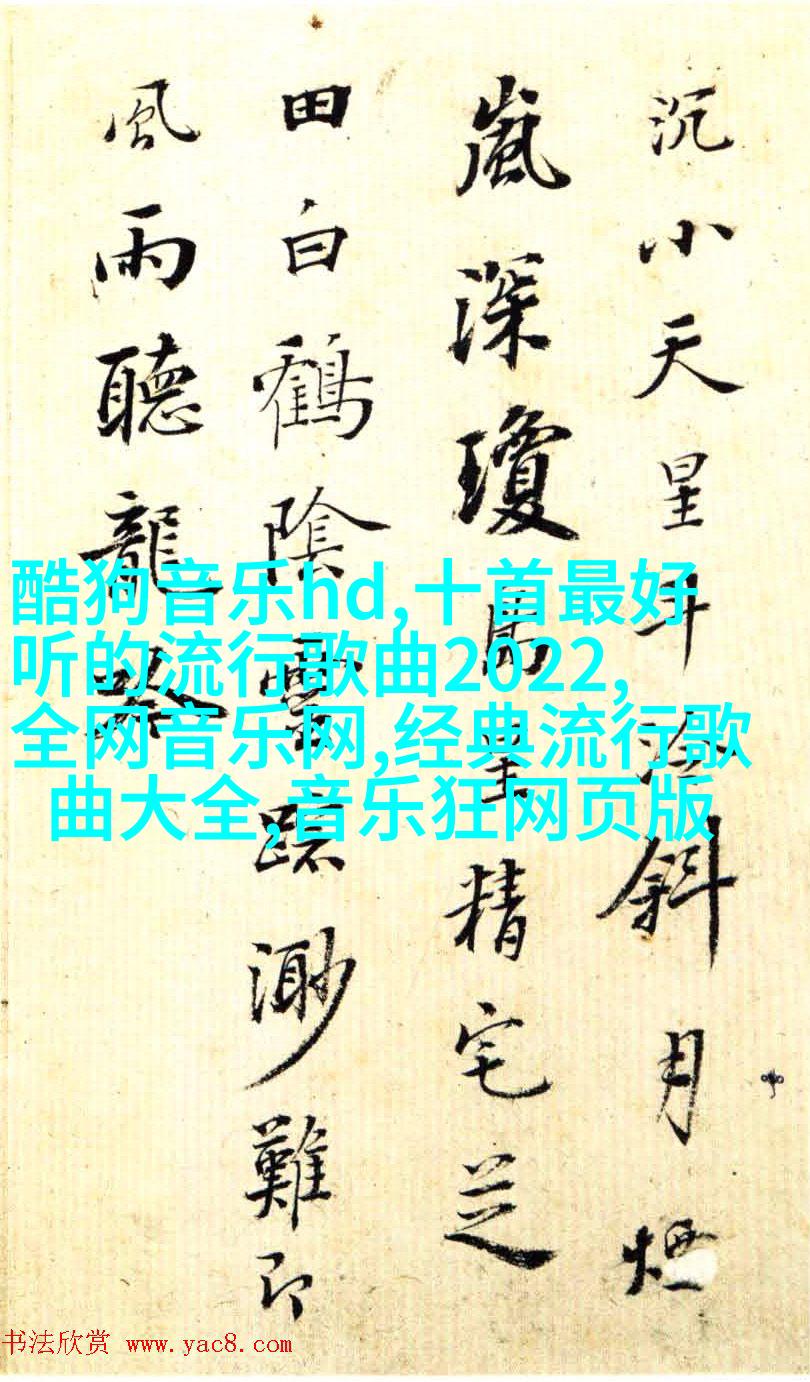 沉小天星斗冷斜月煙
嵐深瓊精宅芝
田白鶴陰靈蹤渺難即
風雨聽龍
酷狗音乐hd,十首最好
听的流行歌曲2022,
全网音乐网,经典流行歌
曲大全,音乐狂网页版
书法欣赏 www.yac8.com